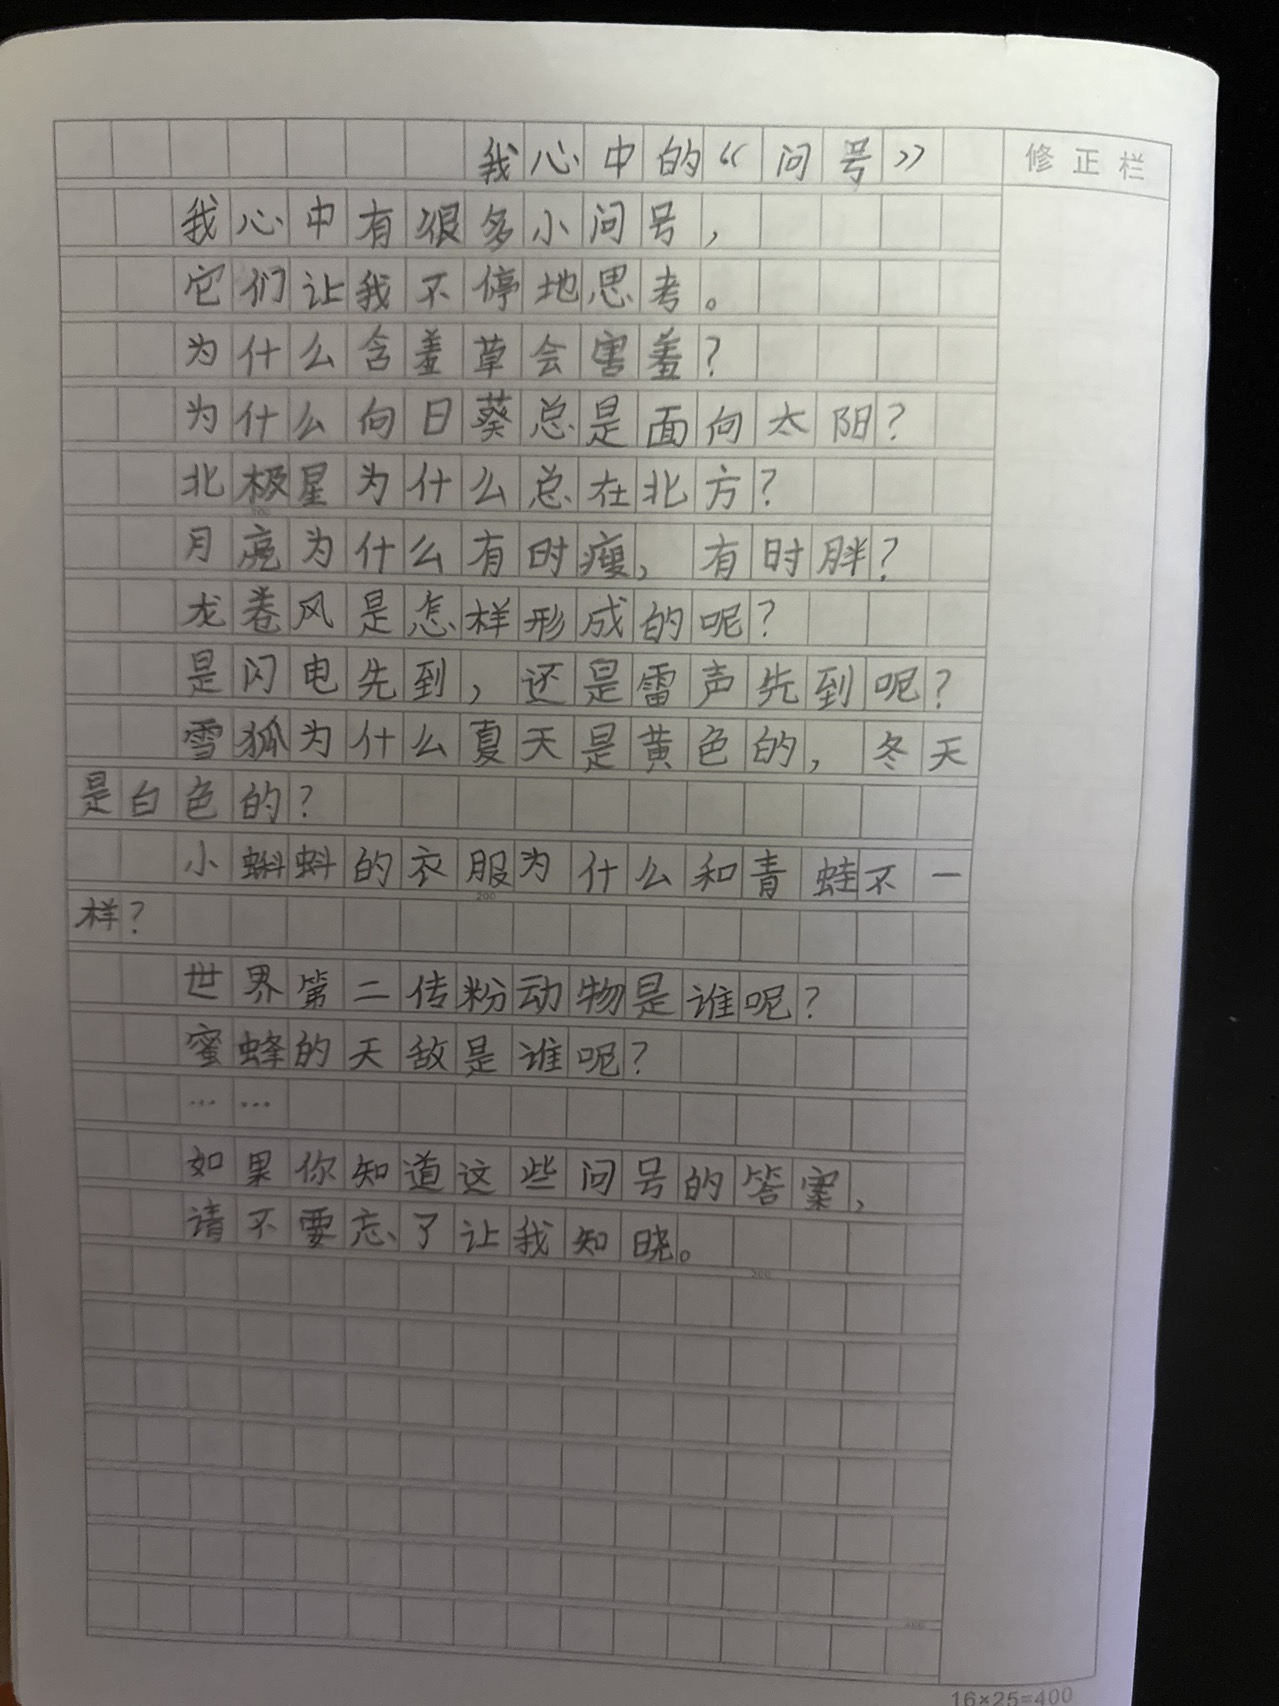 我心中的“问号”
修正栏
我心中有很多小问号，
它们让我不停地思考。
为什么含羞草会害羞？
为什么向日葵总是面向太阳？
北极星为什么总在北方？
月亮为什么有时瘦，有时胖？
龙卷风是怎样形成的呢？
是闪电先到，还是雷声先到呢？
雪狐为什么夏天是黄色的，冬天
是白色的？
小蝌蚪的衣服为什么和青蛙不一
样？
200
世界第二传粉动物是谁呢？
蜜蜂的天敌是谁呢？
……
如果你知道这些问号的答案，
请不要忘了让我知晓。
16×25=400